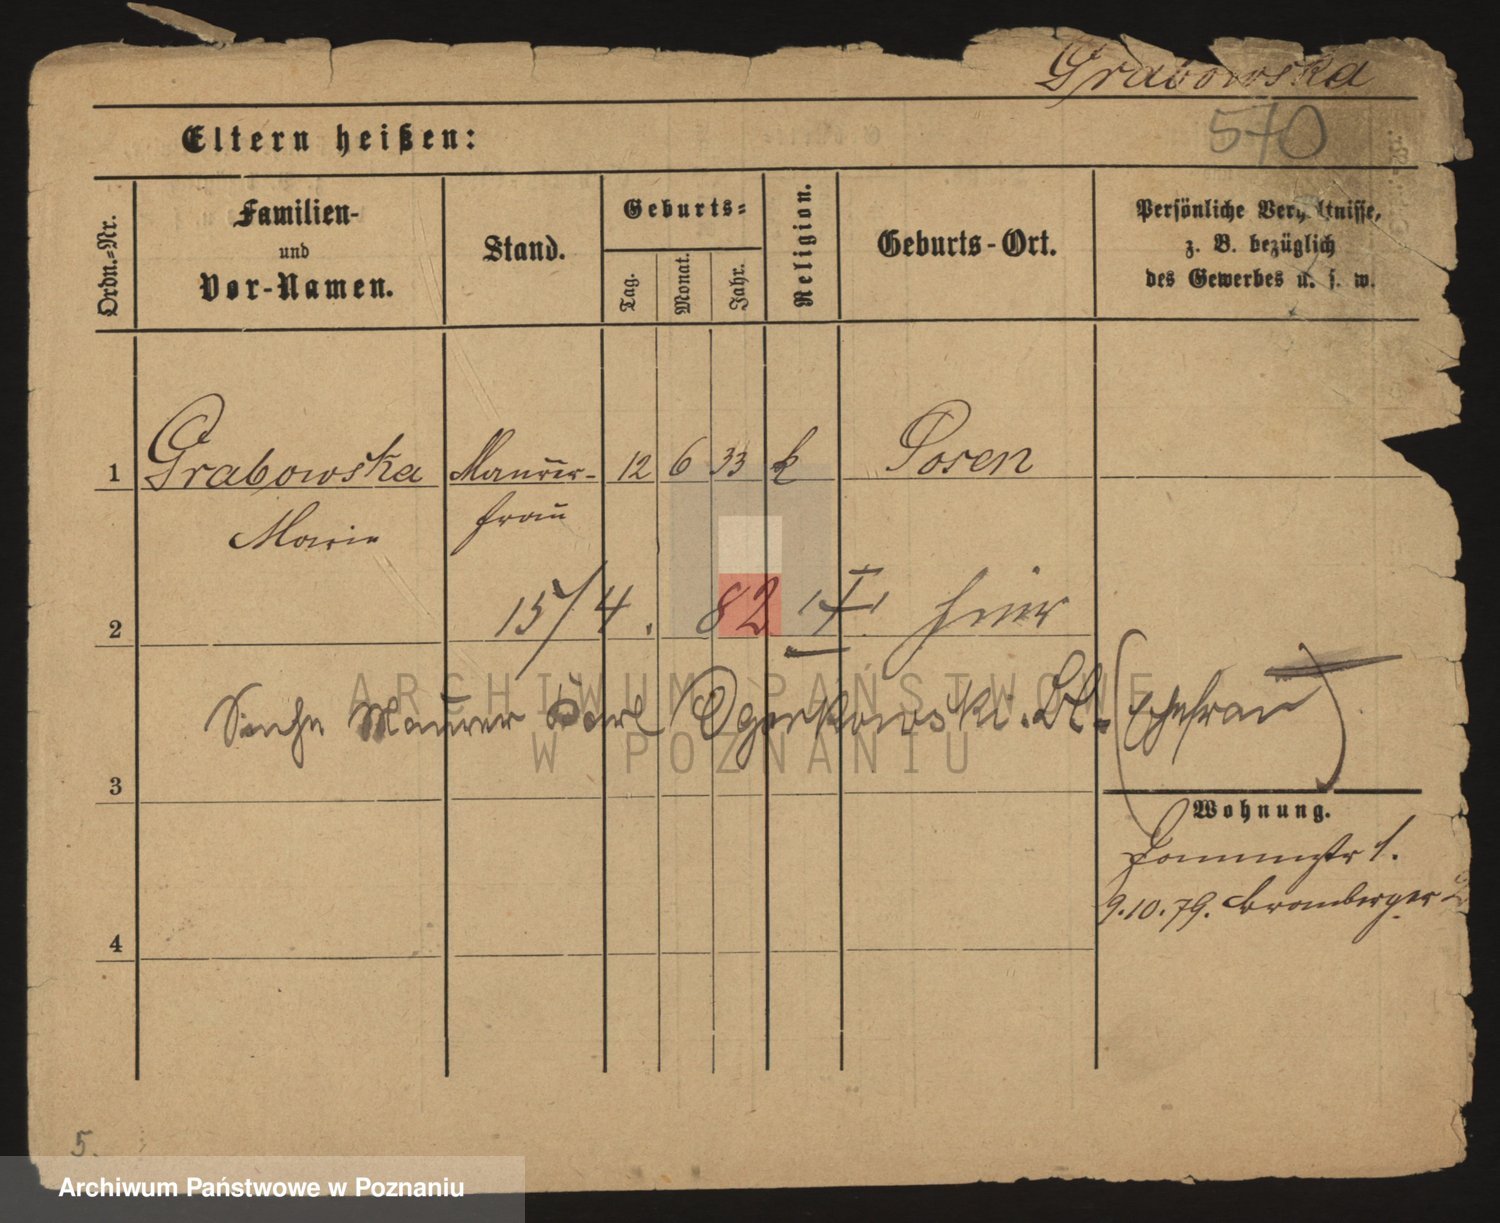 Grabowska
570
Eltern heißen:
Ordn.-Nr.
Familien-
und
Vor-Namen.
Stand.
Geburts-
Tag.
Monat.
Jahr.
Religion.
Geburts-Ort.
Persönliche Verhältnisse,
z. B. bezüglich
des Gewerbes u. s. w.
1 Grabowska Maurer- 12 6 33 k Posen
Marie frau
2 15/4. 82 hier
ARCHIWUM PAŃSTWOWE
W POZNANIU
Siehe Maurer Carl (Ehefrau)
3
Wohnung.
1.
9.10.79. Bromberger
4
5.
Archiwum Państwowe w Poznaniu